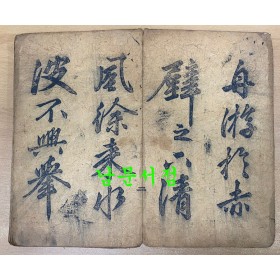 舟游於赤
壁之下清
風徐来水
波不興舉
남문서점